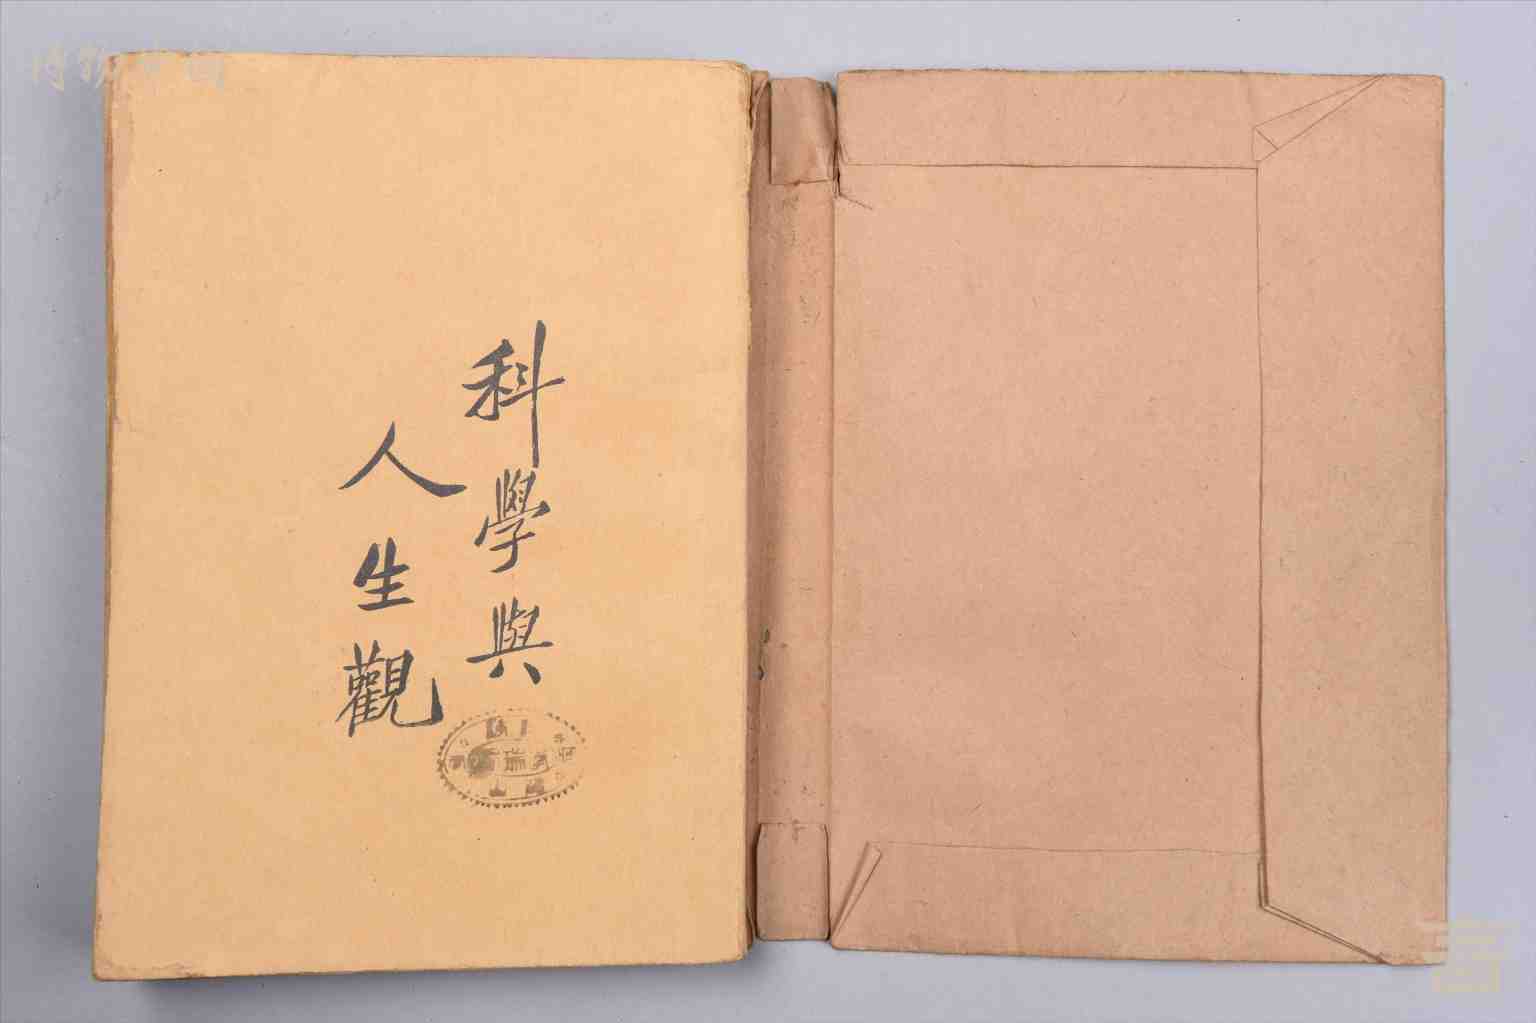 科學與
人生觀
博物中国